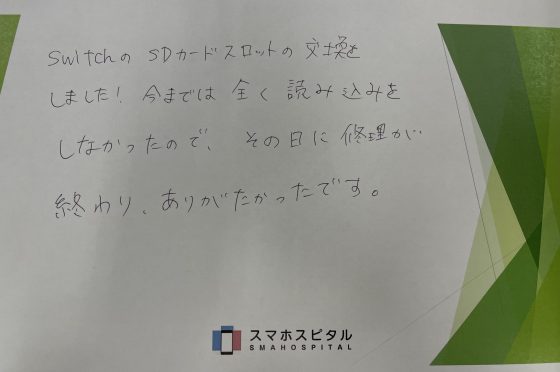 SwitchのSDカードスロットの交換を
しました! 今までは全く読み込みを
しなかったので、その日に修理が
終わり、ありがたかったです。
スマホスピタル
SMAHOSPITAL